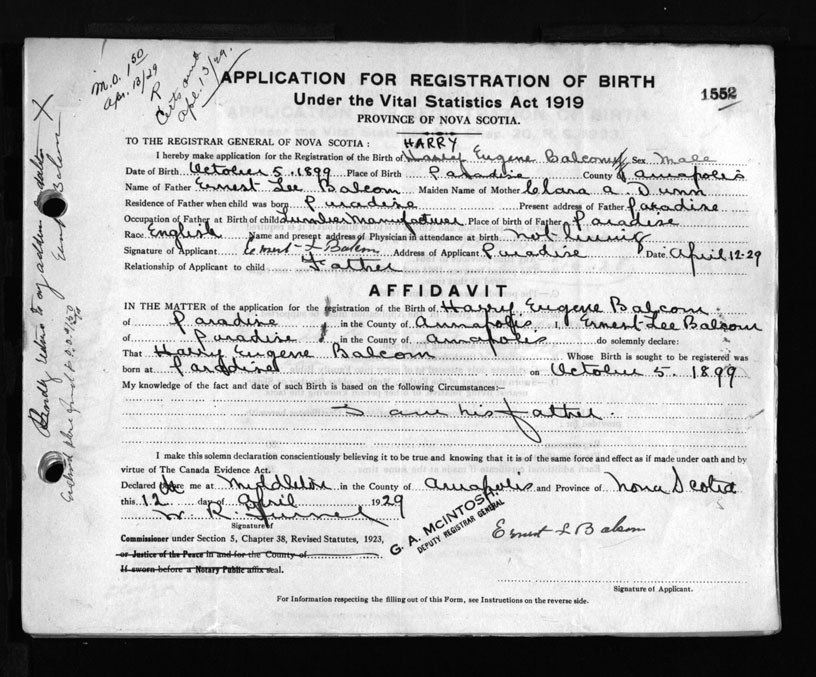 M.O. 1.50
Apr. 13/29
R
Apl. 13/29.
APPLICATION FOR REGISTRATION OF BIRTH
1552
Under the Vital Statistics Act 1919
PROVINCE OF NOVA SCOTIA.
TO THE REGISTRAR GENERAL OF NOVA SCOTIA: HARRY
I hereby make application for the Registration of the Birth of Harry Eugene Balcom Sex Male
Date of Birth October 5, 1899 Place of Birth Paradise County of Annapolis
Name of Father Ernest Lee Balcom Maiden Name of Mother Clara A. Dunn
Residence of Father when child was born Paradise Present address of Father Paradise
Occupation of Father at Birth of child Lumber Manufacture Place of birth of Father Paradise
Race English Name and present address of Physician in attendance at birth not living
Signature of Applicant Ernest L Balcom Address of Applicant Paradise Date April 12-29
Relationship of Applicant to child Father
AFFIDAVIT
IN THE MATTER of the application for the registration of the Birth of Harry Eugene Balcom
of Paradise in the County of Annapolis I, Ernest Lee Balcom
of Paradise in the County of Annapolis do solemnly declare:
That Harry Eugene Balcom Whose Birth is sought to be registered was
born at Paradise on October 5, 1899
My knowledge of the fact and date of such Birth is based on the following Circumstances:—
I am his father.
I make this solemn declaration conscientiously believing it to be true and knowing that it is of the same force and effect as if made under oath and by
virtue of The Canada Evidence Act.
Declared before me at Middleton in the County of Annapolis and Province of Nova Scotia
this 12th day of April 1929
W. R.
Signature of
Commissioner under Section 5, Chapter 38, Revised Statutes, 1923,
or Justice of the Peace in and for the County of
If sworn before a Notary Public affix seal.
G. A. McINTOSH.
DEPUTY REGISTRAR GENERAL
Ernest L Balcom
Signature of Applicant.
For Information respecting the filling out of this Form, see Instructions on the reverse side.
Kindly return to my address